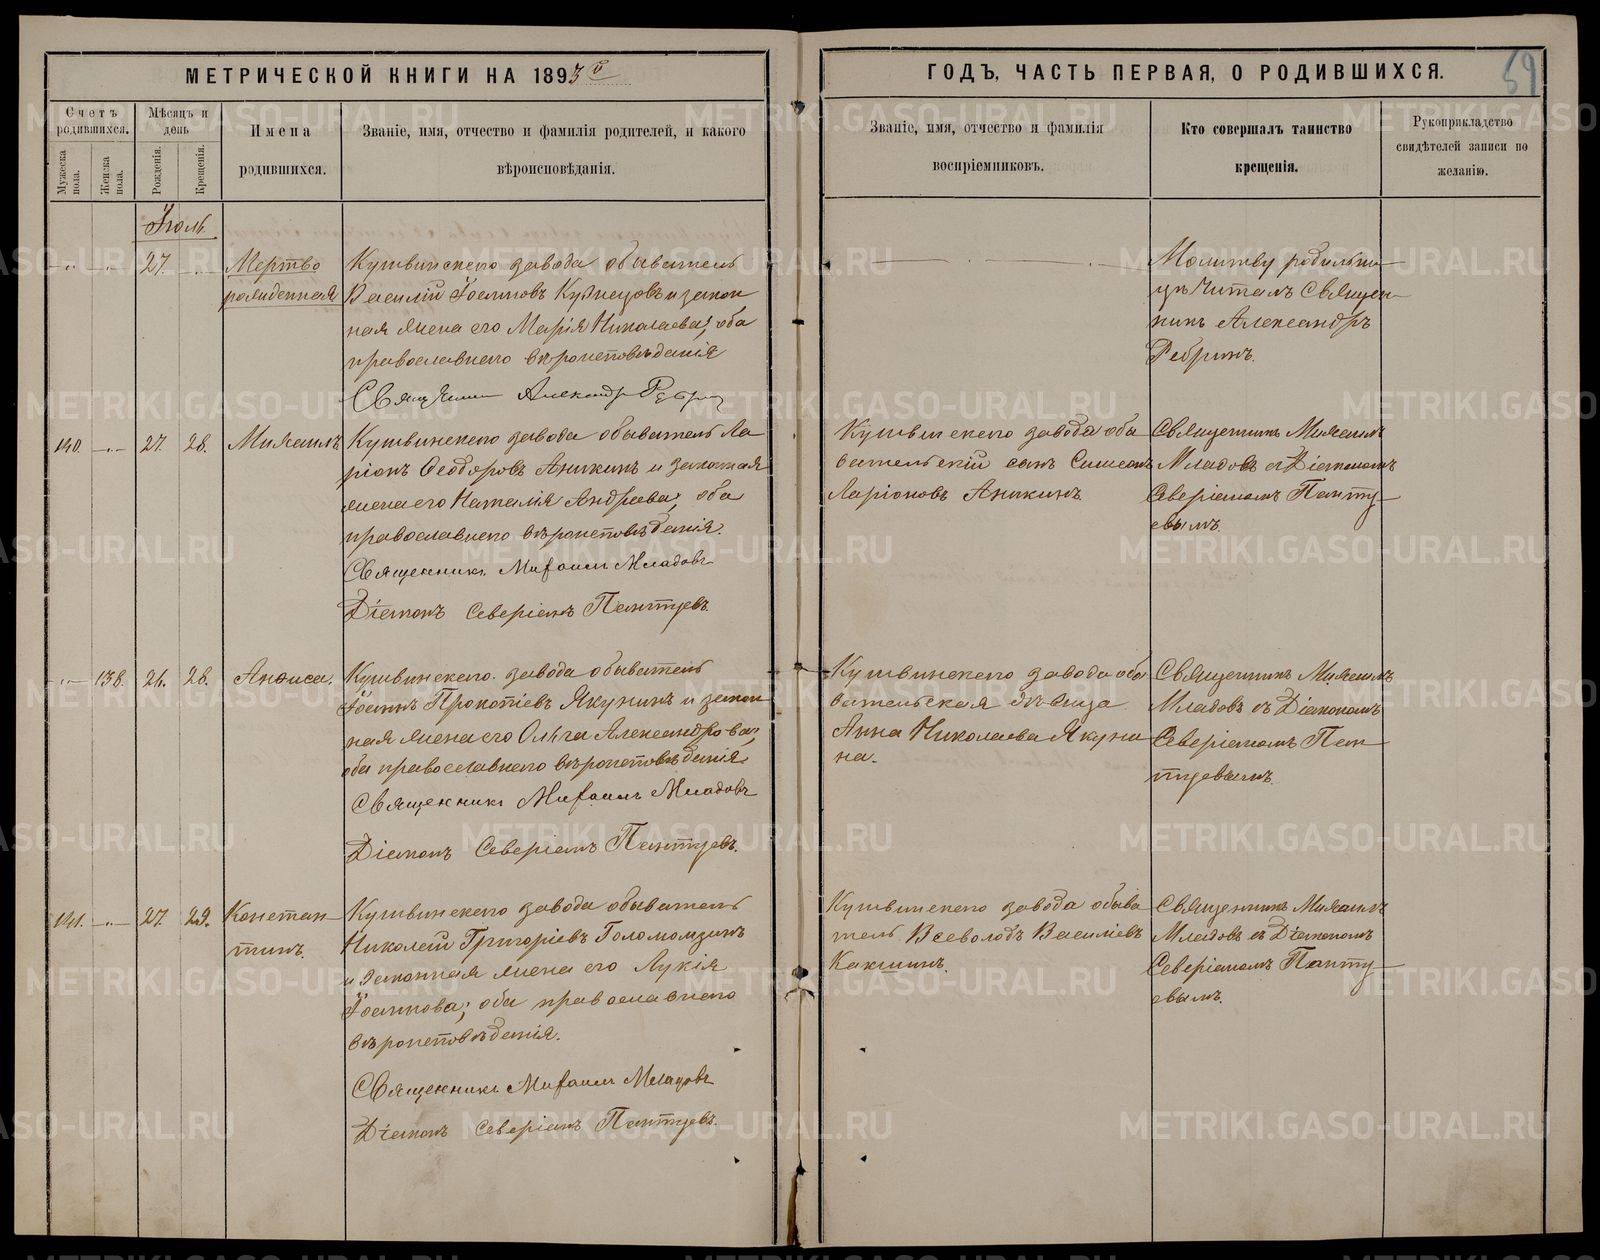 МЕТРИЧЕСКОЙ КНИГИ НА 1893й
ГОДЪ, ЧАСТЬ ПЕРВАЯ, О РОДИВШИХСЯ.
59
Счетъ родившихся.
Мужеска пола.
Женска пола.
Мѣсяцъ и день
Рожденія.
Крещенія.
Имена
родившихся.
Званіе, имя, отчество и фамилія родителей, и какого
вѣроисповѣданія.
Званіе, имя, отчество и фамилія
воспріемниковъ.
Кто совершалъ таинство
крещенія.
Рукоприкладство
свидѣтелей записи по
желанію.
Іюль
27.
Мертво
рожденная
Кушвинскаго завода обыватель
Василій Іоанновъ Кузнецовъ и закон
ная жена его Марія Николаева, оба
православнаго вѣроисповѣданія
Священникъ Александръ Ребринъ
Молитву родильни
цѣ читалъ Священ
никъ Александръ
Ребринъ.
140.
27.
28.
Михаилъ
Кушвинскаго завода обыватель Ла
ріонъ Ѳеодоровъ Аникинъ и законная
жена его Наталія Андреева, оба
православнаго вѣроисповѣданія.
Священникъ Михаилъ Младовъ
Діаконъ Северіанъ Пантуевъ.
Кушвинскаго завода обы
вательскій сынъ Симеонъ
Ларіоновъ Аникинъ.
Священникъ Михаилъ
Младовъ съ Діакономъ
Северіаномъ Панту
евымъ.
138.
26.
28.
Анѳиса.
Кушвинскаго завода обыватель
Іоаннъ Прокопіевъ Якунинъ и закон
ная жена его Ольга Александрова,
оба православнаго вѣроисповѣданія
Священникъ Михаилъ Младовъ
Діаконъ Северіанъ Пантуевъ.
Кушвинскаго завода обы
вательская дѣвица
Анна Николаева Якуни
на.
Священникъ Михаилъ
Младовъ съ Діакономъ
Северіаномъ Пан
туевымъ.
141.
27.
29.
Констан
тинъ.
Кушвинскаго завода обыватель
Николай Григоріевъ Голомолзинъ
и законная жена его Лукія
Іоаннова; оба православнаго
вѣроисповѣданія.
Священникъ Михаилъ Младовъ
Діаконъ Северіанъ Пантуевъ.
Кушвинскаго завода обыва
тель Всеволодъ Василіевъ
Какшинъ.
Священникъ Михаилъ
Младовъ съ Діакономъ
Северіаномъ Панту
евымъ.
METRIKI.GASO-URAL.RU